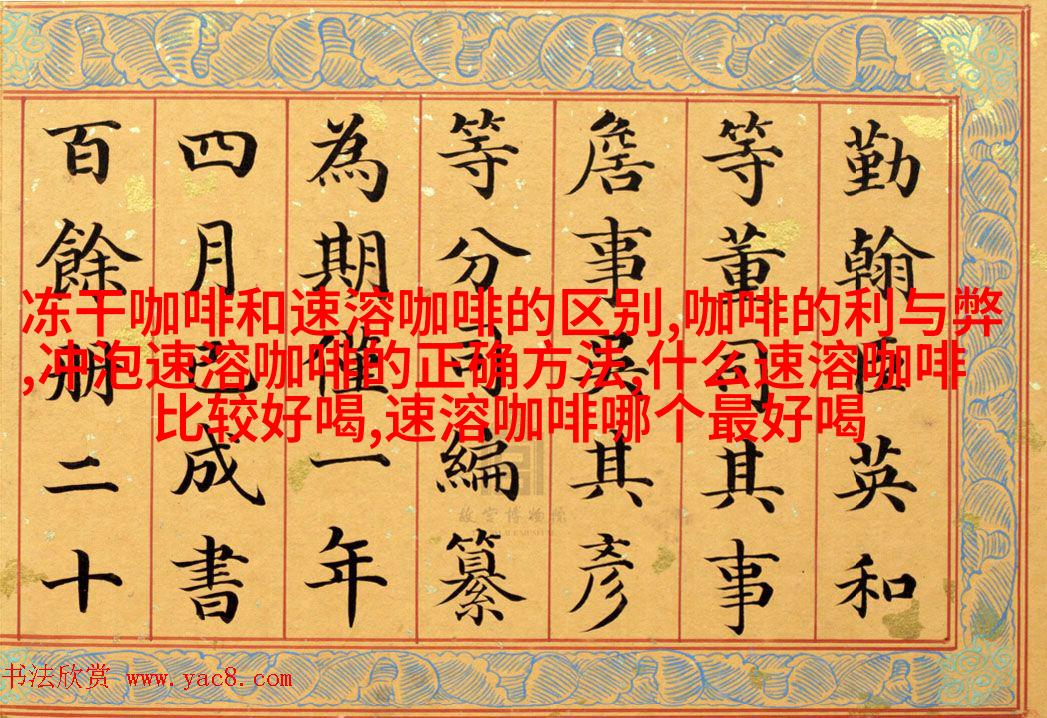 勤翰臣英和
等董司其事
詹事吳其彥
等分司編纂
為期僅一年
四月已成書
百餘冊二十
冻干咖啡和速溶咖啡的区别,咖啡的利与弊
,冲泡速溶咖啡的正确方法,什么速溶咖啡
比较好喝,速溶咖啡哪个最好喝
故宫博物院
书法欣赏 www.yac8.com